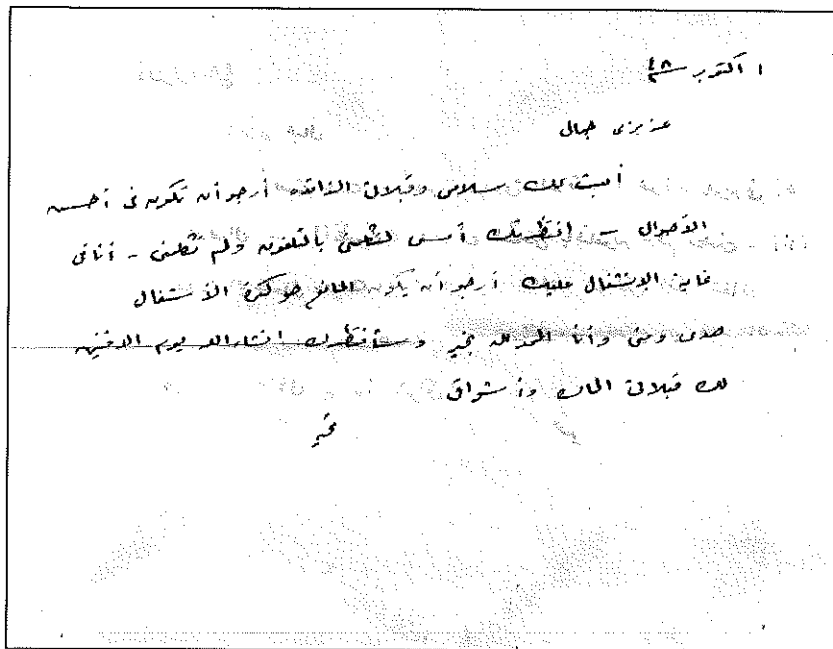 ١ أكتوبر ٤٨
عزيزى جمال
أبعث لك سلامى وقبلاتى الزائده أرجو أن تكون فى أحسن
الأحوال - انتظرتك أمس لتكلمنى بالتلفون ولم تكلمنى - أنا فى
غاية الانشغال عليك أرجو أن يكون المانع هو كثرة الأشغال
هدى ومنى وأنا الحمد لله بخير وسأنتظرك انشاء الله يوم الاثنين
لك قبلاتى الحارة وأشواقى